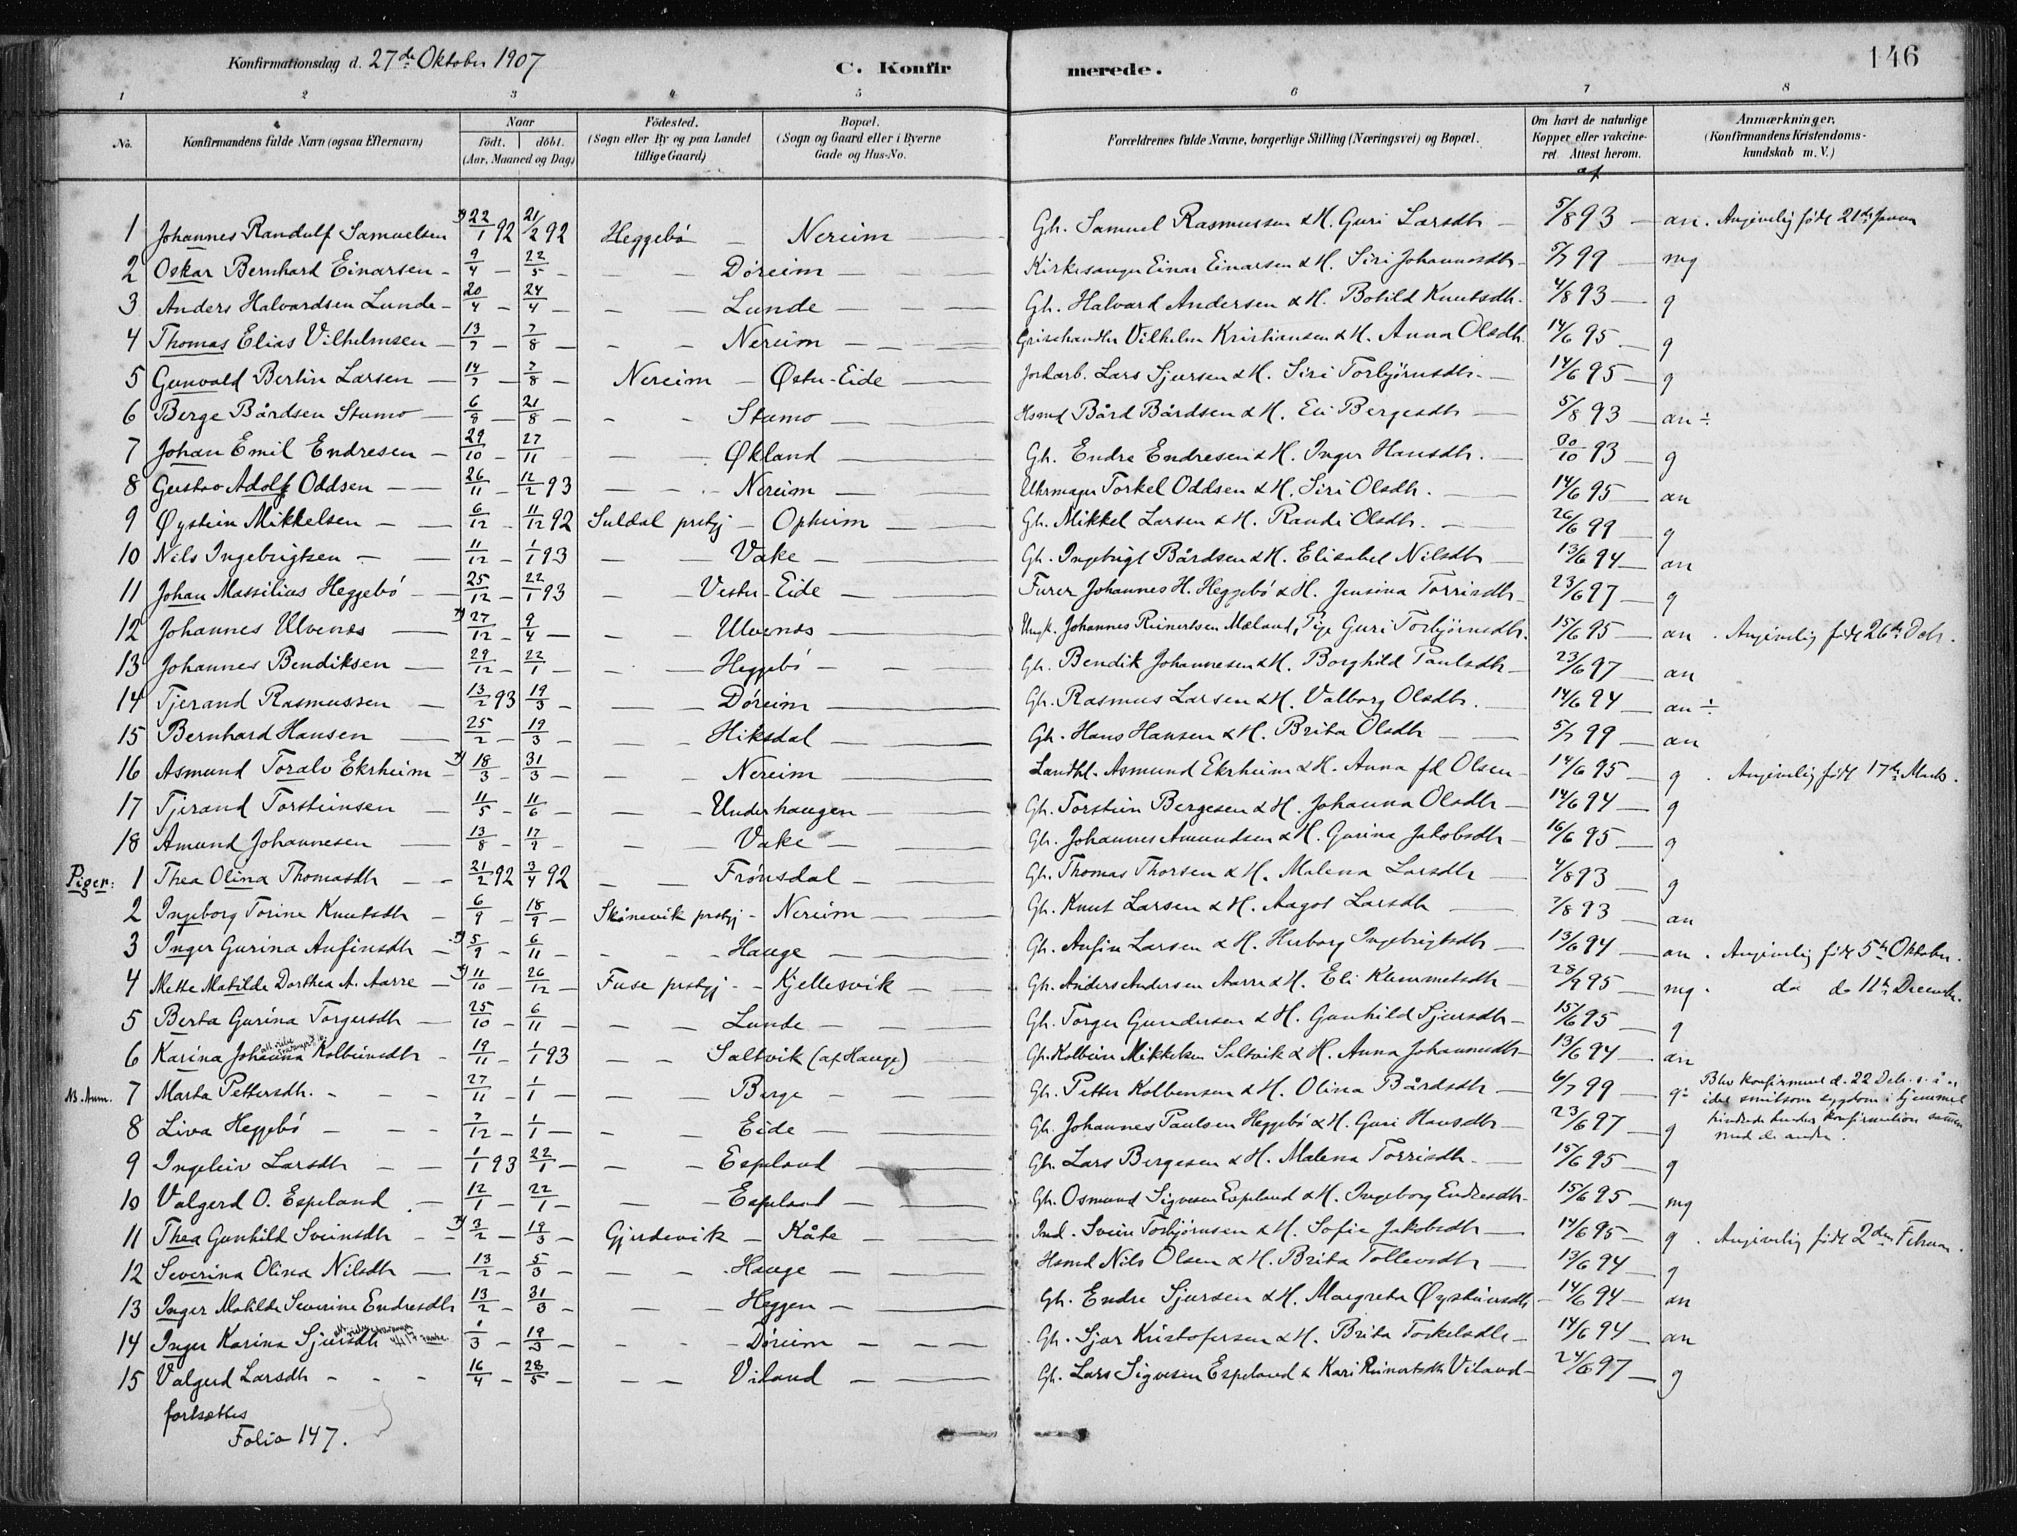 Konfirmationsdag d. 27de Oktober 1907 C. Konfirmerede. 146
1 2 3 4 5 6 7 8
No. Konfirmandens fulde Navn (ogsaa Efternavn) Naar födt. döbt. (Aar, Maaned og Dag) Födested. (Sogn eller By og paa Landet tillige Gaard) Bopæl. (Sogn og Gaard eller i Byerne Gade og Hus-No. Forældrenes fulde Navne, borgerlige Stilling (Næringsvei) og Bopæl. Om havt de naturlige Kopper, eller vakcineret Attest herom. Anmærkninger. (Konfirmandens Kristendomskundskab m. V.)
af
1 Johannes Randulf Samuelsen 22/1 92 21/2 92 Heggebö — Nereim — Gh. Samuel Rasmussen & H. Guri Larsdtr — 5/8 93 — an. Angivelig född 21de Januar
2 Oskar Bernhard Einarsen — 9/4 — 22/5 — — — Döreim — Kirkesanger Einar Einarsen & H. Siri Johannesdtr — 5/7 99 — mg
3 Anders Halvardsen Lunde — 20/4 — 24/4 — — — Lunde — Gh. Halvard Andersen & H. Botild Knutsdtr. 4/8 93 — g
4 Thomas Elias Vilhelmsen — 13/7 — 7/8 — — — Nereim — Grisehandler Vilhelm Kristiansen & H. Anna Olsdtr. 14/6 95 — g
5 Gunvald Bertin Larsen — 14/7 — 7/8 — Nereim — Östre-Eide — Jordarb. Lars Sjursen & H. Siri Torbjörnsdtr. — 14/6 95 — g
6 Berge Bårdsen Stumo — 6/8 — 21/8 — — — Stumo — Hsmd Bård Bårdsen & H. Eli Bergesdtr — 5/8 93 — an ÷
7 Johan Emil Endresen — 29/10 — 27/11 — — — Økland — Gh. Endre Endresen & H. Inger Hansdtr. — 30/10 93 — g
8 Gustav Adolf Oddsen — 26/11 — 12/2 93 — — Nereim — Uhrmager Torkel Oddsen & H. Siri Olsdtr. — 14/6 95 — an
9 Øystein Mikkelsen — 6/12 — 11/12 92 Suldal prstgj — Opheim — Gh. Mikkel Larsen & H. Randi Olsdtr. — 26/6 99 — g
10 Nils Ingebrigtsen — 11/12 — 1/1 93 — — Vake — Gh. Ingebrigt Bårdsen & H. Elisabet Nilsdtr — 13/6 94 — an
11 Johan Massilius Heggebö — 25/12 — 22/1 93 — — Vestre-Eide — Furer Johannes H. Heggebö & H. Jensina Torrisdtr — 23/6 97 — g
12 Johannes Ulvenes — 27/12 — 9/4 — — — Ulvenes — Ungk. Johannes Reinertsen Mæland, Pige Guri Torbjörnsdtr. 15/6 95 — an . Angivelig född 26de Debr.
13 Johannes Bendiksen — 29/12 — 22/1 — — — Heggebö — Gh. Bendik Johannesen & H. Borghild Paulsdtr — 23/6 97 — an
14 Tjerand Rasmussen — 13/2 93 19/3 — — — Döreim — Gh. Rasmus Larsen & H. Valborg Olsdtr. — 14/6 94 — an ÷
15 Bernhard Hansen — 25/2 — 19/3 — — — Hiksdal — Gh. Hans Hansen & H. Brita Olsdtr — 5/7 99 — an
16 Asmund Toralv Ekrheim — 18/3 — 31/3 — — — Nereim — Landhl. Asmund Ekrheim & H. Anna fd Olsen — 14/6 95 — g . Angivelig född 17de Marts.
17 Tjerand Torsteinsen — 11/5 — 11/6 — — — Underhaugen — Gh. Torstein Bergesen & H. Johanna Olsdtr — 14/6 94 — g
18 Amund Johannesen — 13/8 — 17/9 — — — Vake — Gh. Johannes Amundsen & H. Gurina Jakobsdtr — 16/6 95 — g
Piger: 1 Thea Olina Thomasdtr — 21/2 92 3/4 92 — — Frönsdal — Gh. Thomas Thorsen & H. Malena Larsdtr — 4/8 93 — g
2 Ingeborg Torine Knutsdtr — 6/9 — 18/9 — Skånevik prstgj — Nereim — Gh. Knut Larsen & H. Aagot Larsdtr — 7/8 93 — an
3 Inger Gurina Anfinsdtr — 5/9 — 6/11 — — — Hauge — Gh. Anfin Larsen & H. Herborg Ingebrigtsdtr — 13/6 94 — an . Angivelig född 5te Oktober.
4 Mette Matilde Dorthea A. Aarre — 11/10 — 26/12 — Fuse prstgj — Kjellesvik — Gh. Anders Andersen Aarre & H. Eli Klemmetsdtr — 28/9 95 — mg . do do 11te Decembr.
5 Berta Gurina Torgersdtr — 25/10 — 6/11 — — — Lunde — Gh. Torger Gundersen & H. Gunhild Sjursdtr — 15/6 95 — g
6 Karina Johanna Kolbeinsdtr — 19/11 — 1/1 93 — — Saltvik (af Hauge) Gh. Kolbein Mikkelsen Saltvik & H. Anna Johannesdtr — 13/6 94 — an
NB. Anm. 7 Marta Pettersdtr. — 27/11 — 1/1 — — — Berge — Gh. Petter Kolbensen & H. Olina Bårdsdtr — 6/7 99 — g Blev konfirmeret d. 22 Debr. s. å. idet smitsom sygdom i hjemmet hindrede hendes konfirmation sammen med de andre.
8 Liva Heggebö — 7/12 — 1/1 — — — Eide — Gh. Johannes Paulsen Heggebö & H. Guri Hansdtr — 23/6 97 — g
9 Ingeleiv Larsdtr — 1/1 93 22/1 — — — Espeland — Gh. Lars Bergesen & H. Malena Torrisdtr. — 15/6 95 — g
10 Valgerd O. Espeland — 12/1 — 22/1 — — — Espeland — Gh. Osmund Sigvesen Espeland & H. Ingeborg Endresdtr. 15/6 95 — mg
11 Thea Gunhild Sveinsdtr — 3/2 — 19/3 — Gjerdevik — Kåte — Ind. Svein Torbjörnsen & H. Sofie Jakobsdtr — 14/6 95 — g . Angivelig född 2den Februar.
12 Severina Olina Nilsdtr — 13/2 — 5/3 — — — Hauge — Hsmd Nils Olsen & H. Brita Tollevsdtr — 13/6 94 — g
13 Inger Matilde Severine Endresdtr 13/2 — 31/3 — — — Heggen — Gh. Endre Sjursen & H. Margreta Øysteinsdtr — 14/6 94 — an
14 Inger Karina Sjursdtr 1/3 — 19/3 — — — Döreim — Gh. Sjur Kristofersen & H. Brita Torkelsdtr — 14/6 94 — an
15 Valgerd Larsdtr — 16/4 — 28/5 — — — Viland — Gh. Lars Sigvesen Espeland & Kari Reinertsdtr Viland — 24/6 97 — g
fortsættes
Folio 147.